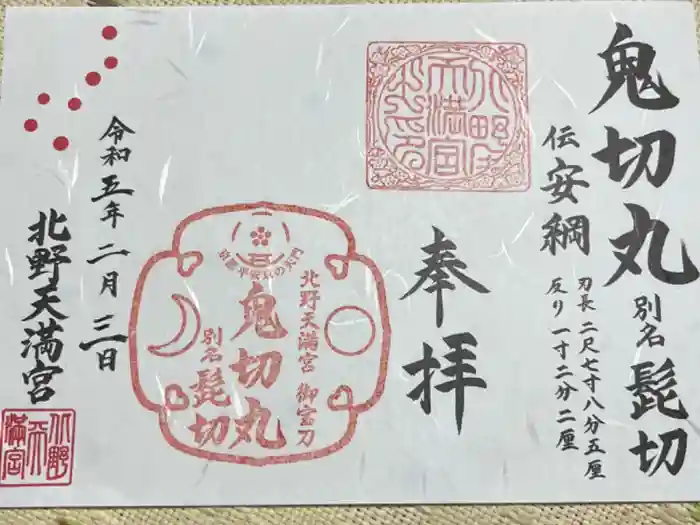 鬼切丸
別名 髭切
伝安綱
刃長 二尺七寸八分五厘
反り 一寸二分二厘
奉拝
北野天満宮 御宝刀
鬼切丸
別名 髭切
令和五年 二月 三日
北野天満宮
北野
天
満宮